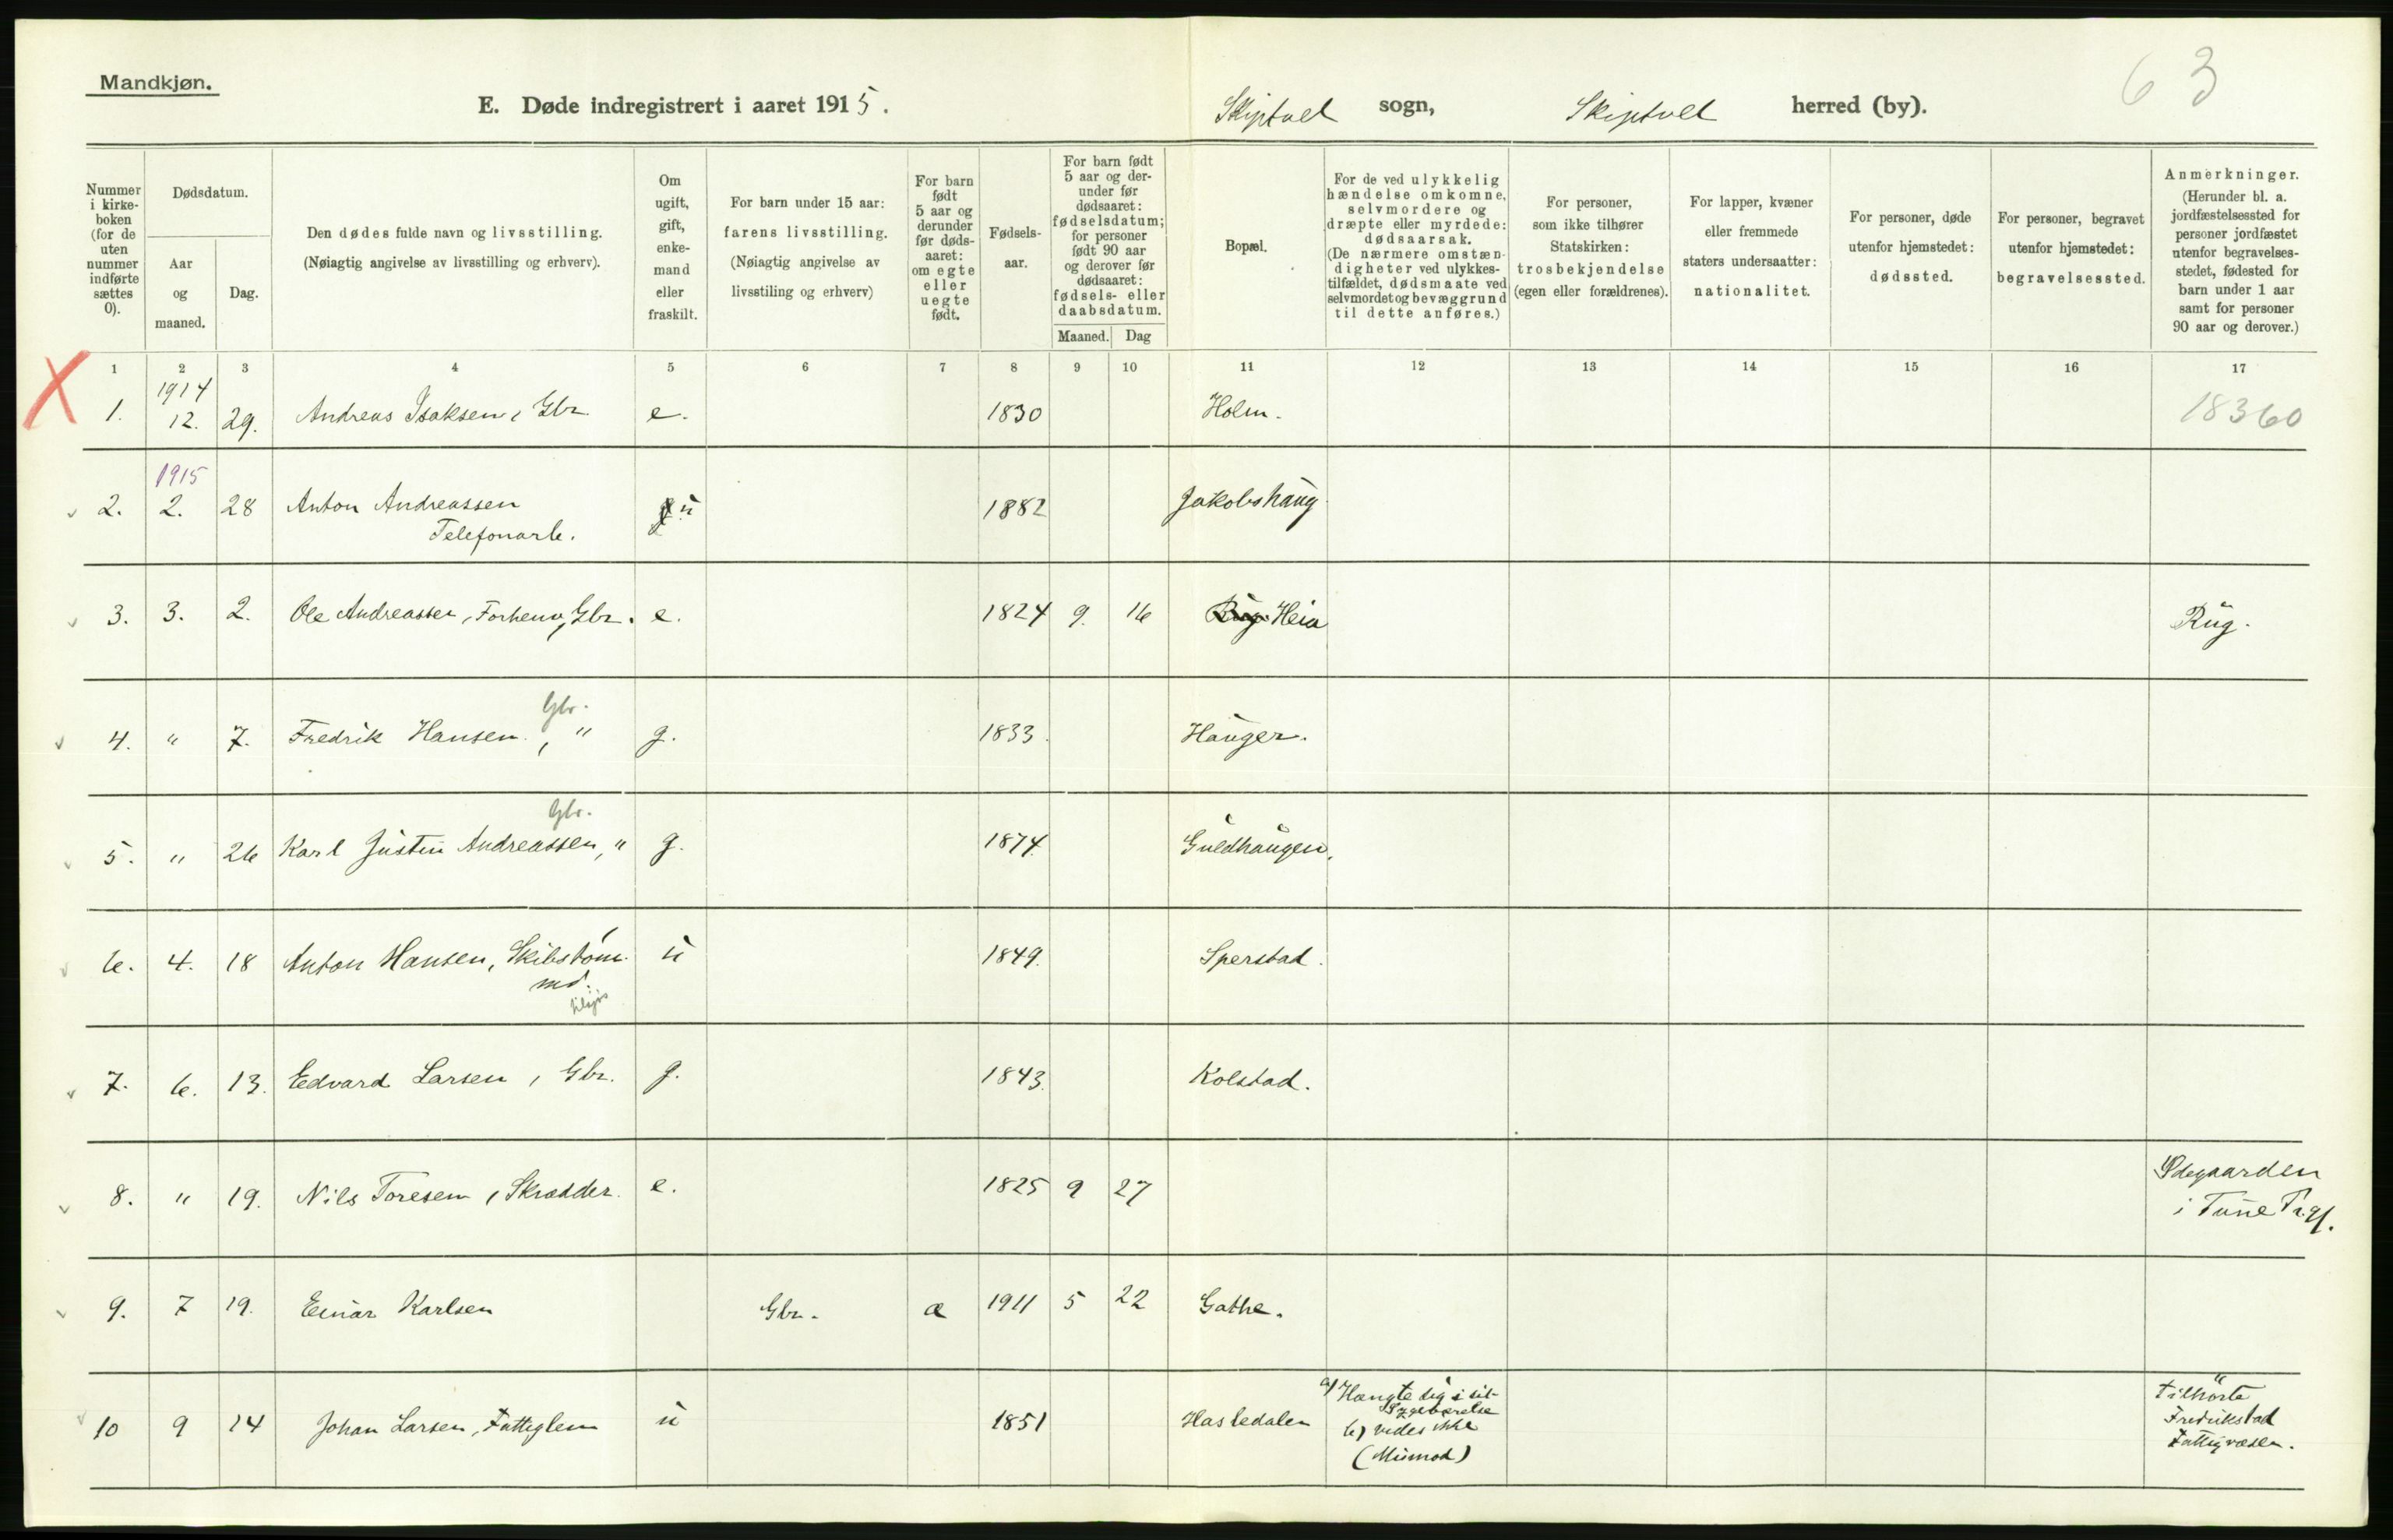 Mandkjøn.
E. Døde indregistrert i aaret 1915.
Skiptvet sogn, Skiptvet herred (by).
63
Nummer i kirke-boken (for de uten nummer indførte sættes 0).
Dødsdatum.
Aar og maaned.
Dag.
Den dødes fulde navn og livsstilling.
(Nøiagtig angivelse av livsstilling og erhverv).
Om ugift, gift, enke-mand eller fraskilt.
For barn under 15 aar: farens livsstilling.
(Nøiagtig angivelse av livsstiling og erhverv)
For barn født 5 aar og derunder før døds-aaret: om egte eller uegte født.
Fødsels-aar.
For barn født 5 aar og der-under før dødsaaret: fødselsdatum; for personer født 90 aar og derover før dødsaaret: fødsels- eller daabsdatum.
Maaned. Dag
Bopæl.
For de ved ulykkelig hændelse omkomne, selvmordere og dræpte eller myrdede: dødsaarsak.
(De nærmere omstæn-digheter ved ulykkes-tilfældet, dødsmaate ved selvmordet og bevæggrund til dette anføres.)
For personer, som ikke tilhører Statskirken: trosbekjendelse (egen eller forældrenes).
For lapper, kvæner eller fremmede staters undersaatter: nationalitet.
For personer, døde utenfor hjemstedet: dødssted.
For personer, begravet utenfor hjemstedet: begravelsessted.
Anmerkninger.
(Herunder bl. a. jordfæstelsessted for personer jordfæstet utenfor begravelses-stedet, fødested for barn under 1 aar samt for personer 90 aar og derover.)
1 2 3 4 5 6 7 8 9 10 11 12 13 14 15 16 17
X 1. 1914 12. 29. Andreas Isaksen, Gbr. e. 1830 Holm. 18360
2. 1915 2. 28 Anton Andreassen u 1882 Jakobshaug
Telefonarb.
3. 3. 2. Ole Andreassen, Forhenv. Gbr. e. 1824 9. 16 Heia Rug.
Gbr.
4. " 7. Fredrik Hansen, " g. 1833. Hauger.
Gbr.
5. " 26 Karl Justin Andreassen, " g. 1874. Guldhaugen.
6. 4. 18 Anton Hansen, Skibstøm- u 1849. Sperstad.
md.
7. 6. 13. Edvard Larsen, Gbr. g. 1843. Kolstad.
8. " 19. Nils Toresen, Skrædder. e. 1825 9 27 Ødegaarden
i Tune Pr.gj.
9. 7 19. Einar Karlsen Gbr. æ 1911 5 22 Gathe.
10 9 14 Johan Larsen, Fattiglem u 1851 Hasledalen
a) Hængte sig i sit
Sygeværelse
b) vides ikke
(Mismod)
tilhørte
Fredrikstad
Fattigvæsen.